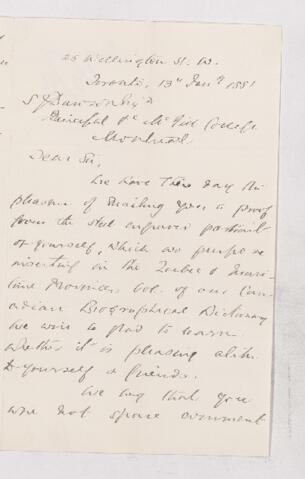 25 Wellington St. W.
Toronto, 13th Jany 1881
S J Dawson Esqr
Principal &c McGill College
Montreal
Dear Sir,
We have this day the
pleasure of mailing you a proof
from the steel engraved portrait
of yourself, which we purpose
inserting in the Quebec & Mari-
time Provinces vol. of our Can-
adian Biographical Dictionary
We will be glad to learn
whether it is pleasing alike
to yourself & friends.
We beg that you
will not spare comment